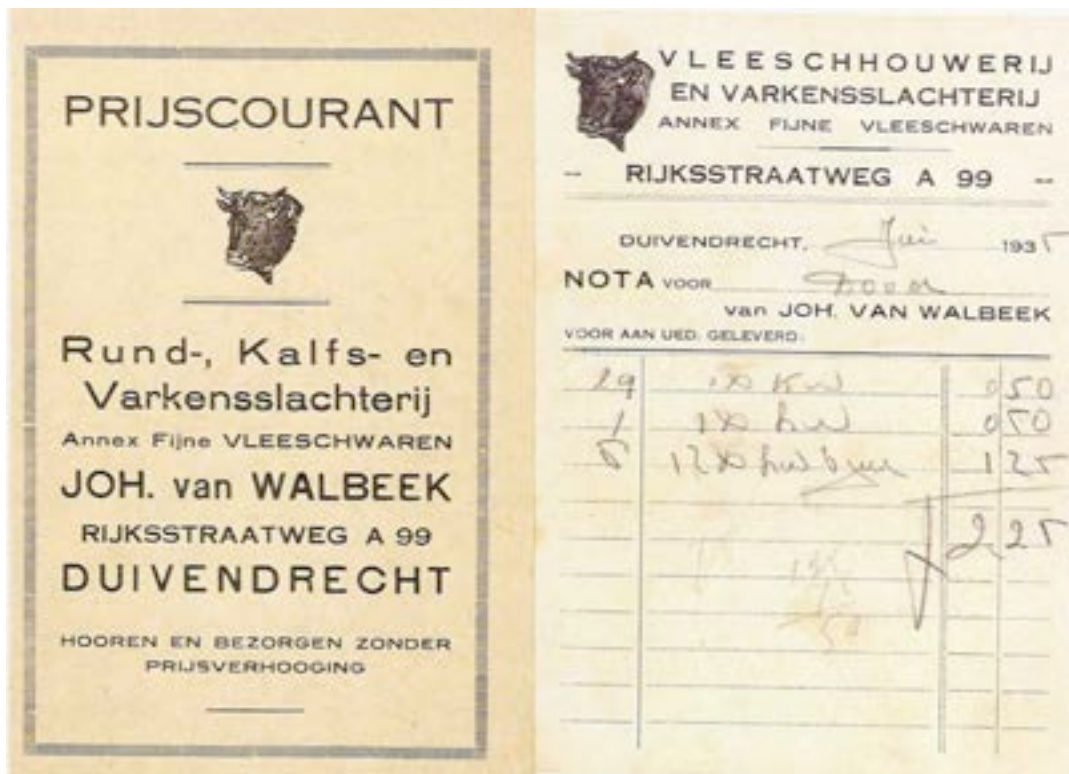 PRIJSCOURANT
Rund-, Kalfs- en
Varkensslachterij
Annex Fijne VLEESCHWAREN
JOH. van WALBEEK
RIJKSSTRAATWEG A 99
DUIVENDRECHT
HOOREN EN BEZORGEN ZONDER
PRIJSVERHOOGING
VLEESCHHOUWERIJ
EN VARKENSSLACHTERIJ
ANNEX FIJNE VLEESCHWAREN
-- RIJKSSTRAATWEG A 99 --
DUIVENDRECHT, 1935
NOTA VOOR
van JOH. VAN WALBEEK
VOOR AAN UED. GELEVERD:
19 050
1 050
5 125
2,25